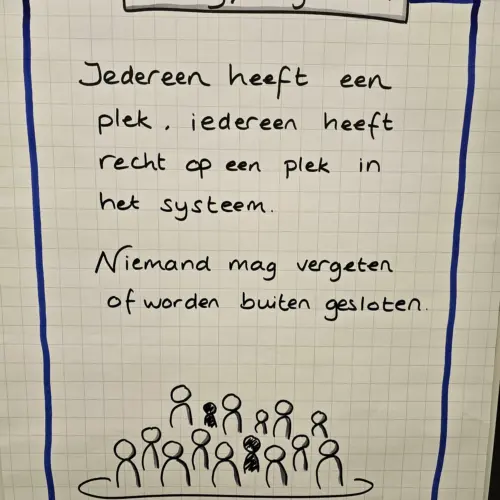 Iedereen heeft een
plek. iedereen heeft
recht op een plek in
het systeem.
Niemand mag vergeten
of worden buiten gesloten.